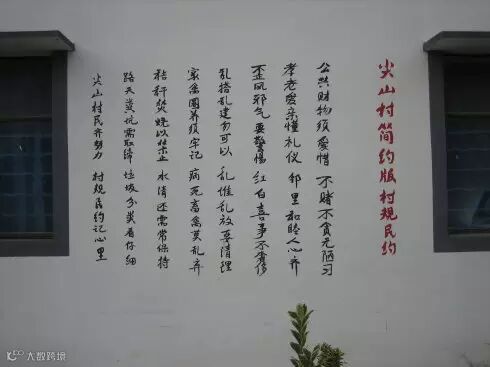 尖山村简约版村规民约
公共财物须爱惜 不赌不贪无陋习
孝老爱亲懂礼仪 邻里和睦人心齐
歪风邪气要警惕 红白喜事不奢侈
乱搭乱建勿可以 乱堆乱放要清理
家禽圈养须牢记 病死畜禽莫乱弃
秸秆焚烧以禁止 水清还需常保持
路天粪坑需取缔 垃圾分类看仔细
尖山村民齐努力 村规民约记心里
大数跨境